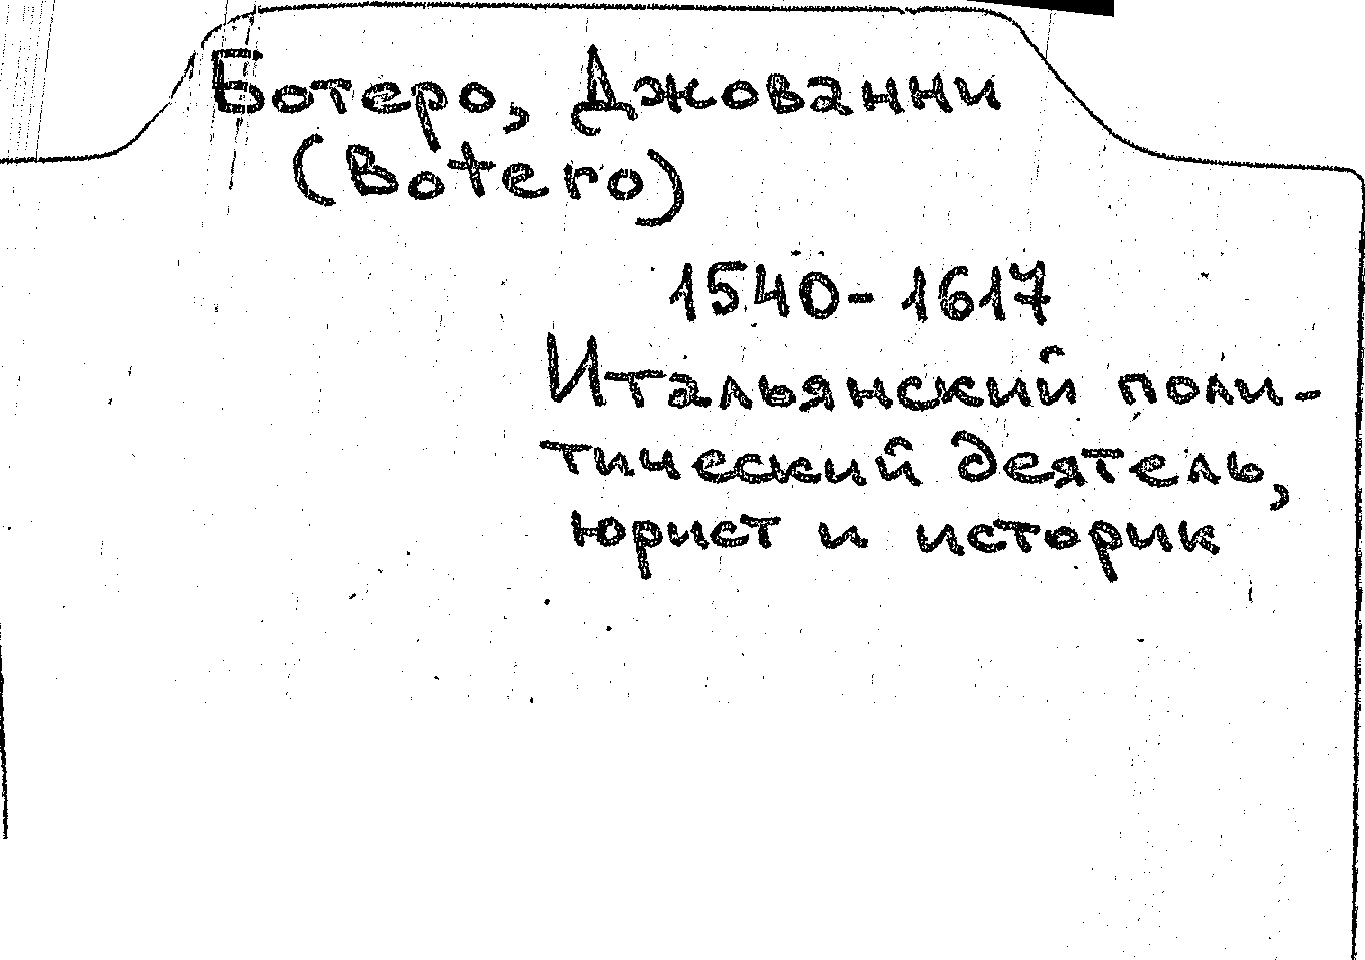 Ботеро, Джованни
(Botero)
1540-1617
Итальянский поли-
тический деятель,
юрист и историк